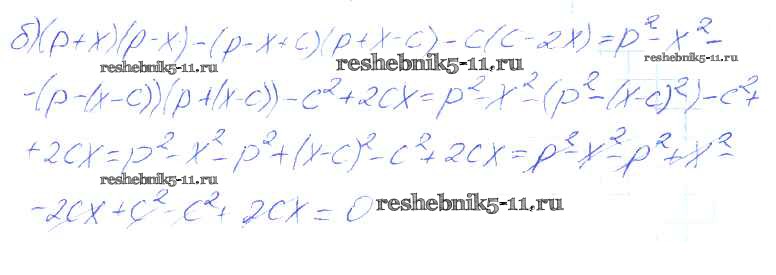 б) (p+x)(p-x)-(p-x+c)(p+x-c)-c(c-2x)=p²-x²-
reshebnik5-11.ru reshebnik5-11.ru reshebnik5-11.ru
-(p-(x-c))(p+(x-c))-c²+2cx=p²-x²-(p²-(x-c)²)-c²+
+2cx=p²-x²-p²+(x-c)²-c²+2cx=p²-x²-p²+x²-
reshebnik5-11.ru
-2cx+c²-c²+2cx=0 reshebnik5-11.ru